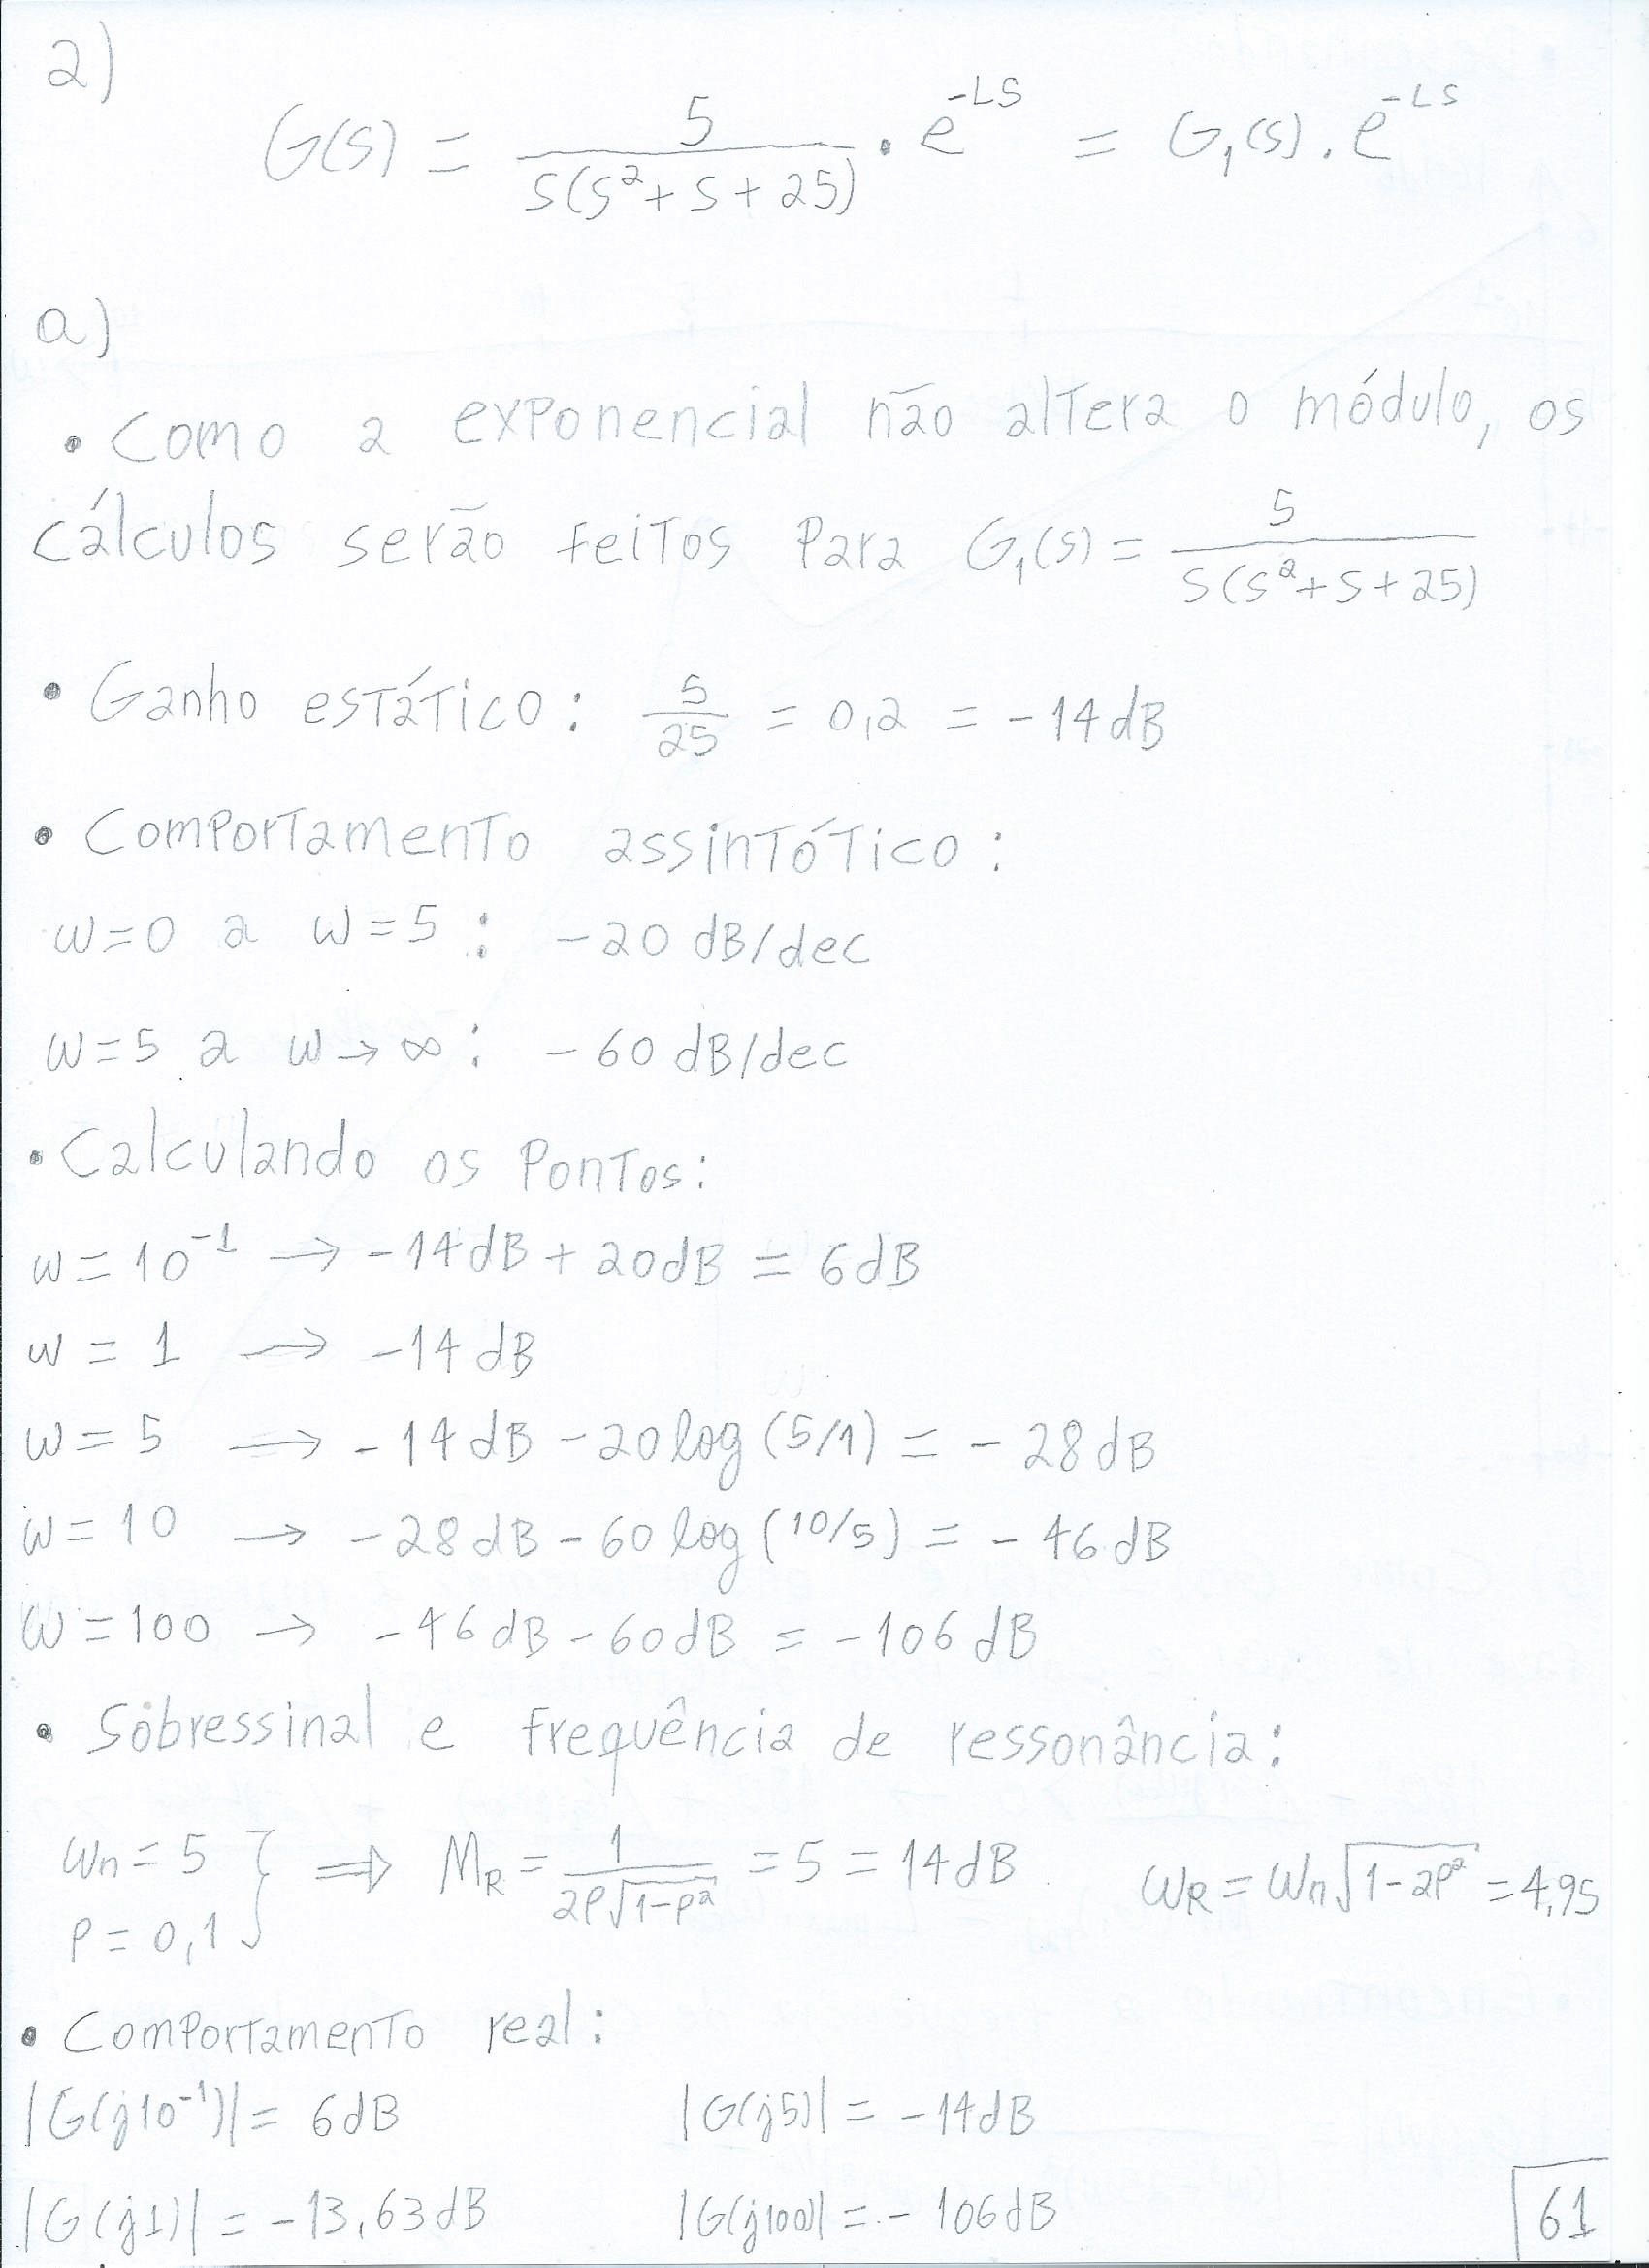 2)
G(s) = 5/(s(s²+s+25)) · e^-Ls = G₁(s) . e^-Ls
a)
• Como a exponencial não altera o módulo, os
cálculos serão feitos para G₁(s) = 5/(s(s²+s+25))
• Ganho estático: 5/25 = 0,2 = -14dB
• Comportamento assintótico:
w=0 a w=5: -20 dB/dec
w=5 a w→∞: -60 dB/dec
• Calculando os pontos:
w=10⁻¹ → -14dB + 20dB = 6dB
w = 1 → -14 dB
w = 5 → -14 dB - 20log(5/1) = -28dB
w=10 → -28dB - 60log(10/5) = -46dB
w=100 → -46dB - 60dB = -106dB
• Sobressinal e frequência de ressonância:
wn=5 } ⇒ MR = 1/(2ρ√(1-ρ²)) = 5 = 14dB wR = wn√(1-2ρ²) = 4,95
ρ=0,1
• Comportamento real:
|G(j10⁻¹)| = 6dB |G(j5)| = -14dB
|G(j1)| = -13,63dB |G(j100)| = -106dB
61